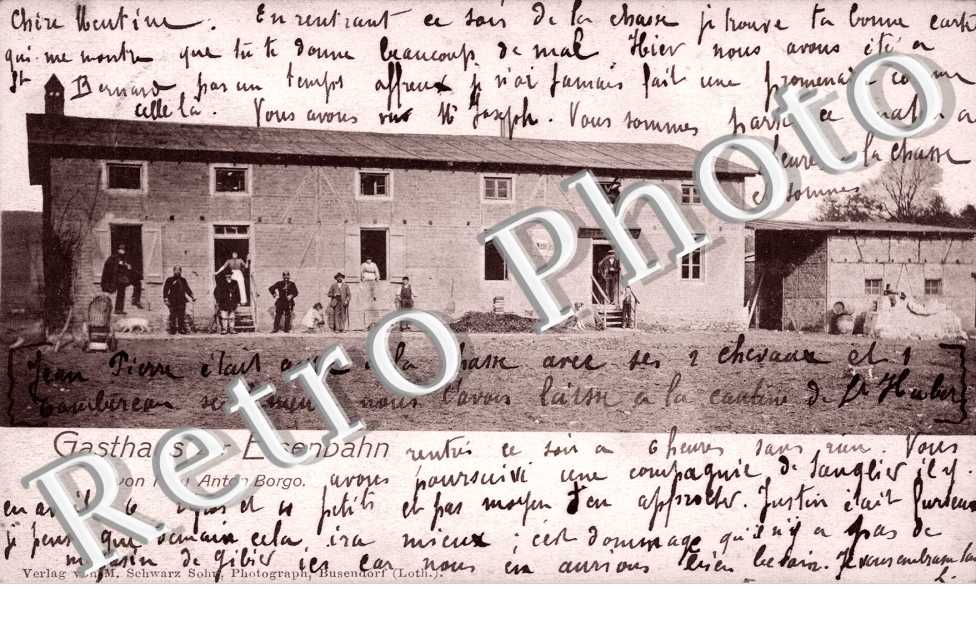 Chère Mentine. En rentrant ce soir de la chasse je trouve ta bonne carte
qui me montre que tu te donne beaucoup de mal Hier nous avons été a
St Bernard par un temps affreux je n'ai jamais fait une promenade comme
celle là. Vous avons vu Mr Joseph. Vous sommes parti ce matin a
heures a la chasse
et sommes
Jean Pierre était avec a la chasse avec ses 2 chevaux et 1
tombereau nous l'avons laissé a la cantine de St Hubert
Gasthaus zur Eisenbahn
von Anton Borgo.
rentré ce soir a 6 heures sans rien. Vous
avons poursuivi une compagnie de sanglier il y
en avait 6 gros et 10 petits et pas moyen d'en approcher. Justin était furieux
je pense que demain cela ira mieux ; c'est dommage qu'il n'y a pas de
magasin de gibier ici car nous en aurions bien besoin. Je vous embrasse
L.
Verlag von M. Schwarz Sohn, Photograph, Busendorf (Loth.).
Retro Photo
Retro Photo